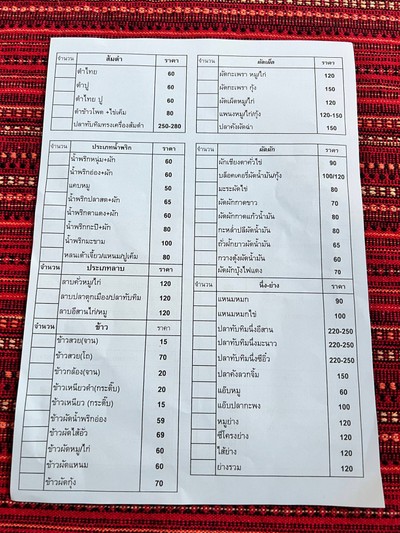 จำนวน ส้มตำ ราคา
ตำไทย 60
ตำปู 60
ตำไทย ปู 60
ตำข้าวโพด +ไข่เค็ม 80
ปลาทับทิมทรงเครื่องส้มตำ 250-280
จำนวน ประเภทน้ำพริก ราคา
น้ำพริกหนุ่ม+ผัก 60
น้ำพริกอ่อง+ผัก 60
แคบหมู 50
น้ำพริกปลาสด+ผัก 65
น้ำพริกตาแดง+ผัก 60
น้ำพริกกะปิ+ผัก 80
น้ำพริกมะขาม 100
หลนเต้าเจี้ยว/แหนม/ปูเค็ม 80
จำนวน ประเภทลาบ ราคา
ลาบคั่วหมู/ไก่ 120
ลาบปลาดุกเมือง/ปลาทับทิม 120
ลาบอีสานไก่/หมู 120
จำนวน ข้าว ราคา
ข้าวสวย(จาน) 15
ข้าวสวย(โถ) 70
ข้าวกล้อง(จาน) 20
ข้าวเหนียวดำ(กระติ๊บ) 20
ข้าวเหนียว (กระติ๊บ) 15
ข้าวผัดน้ำพริกอ่อง 59
ข้าวผัดไส้อั่ว 69
ข้าวผัดหมู/ไก่ 60
ข้าวผัดแหนม 60
ข้าวผัดกุ้ง 70
จำนวน ผัดเผ็ด ราคา
ผัดกะเพรา หมู/ไก่ 120
ผัดกะเพรา กุ้ง 150
ผัดเผ็ดหมู/ไก่ 120
แพนงหมู/ไก่/กุ้ง 120-150
ปลาคังผัดฉ่า 150
จำนวน ผัดผัก ราคา
ผักเชียงดาคั่วไข่ 90
บล็อคเคอรี่ผัดน้ำมัน/กุ้ง 100/120
มะระผัดไข่ 80
ผัดผักกาดขาว 70
ผัดผักกาดแก้วน้ำมัน 80
กะหล่ำปลีผัดน้ำมัน 80
ถั่วฝักยาวผัดน้ำมัน 65
กวางตุ้งผัดน้ำมัน 60
ผัดผักบุ้งไฟแดง 70
จำนวน นึ่ง-ย่าง ราคา
แหนมหมก 90
แหนมหมกไข่ 100
ปลาทับทิมนึ่งอีสาน 220-250
ปลาทับทิมนึ่งมะนาว 220-250
ปลาทับทิมนึ่งซีอิ๊ว 220-250
ปลาคังลวกจิ้ม 150
แอ๊บหมู 60
แอ๊บปลากะพง 100
หมูย่าง 120
ซี่โครงย่าง 120
ไส้ย่าง 120
ย่างรวม 120